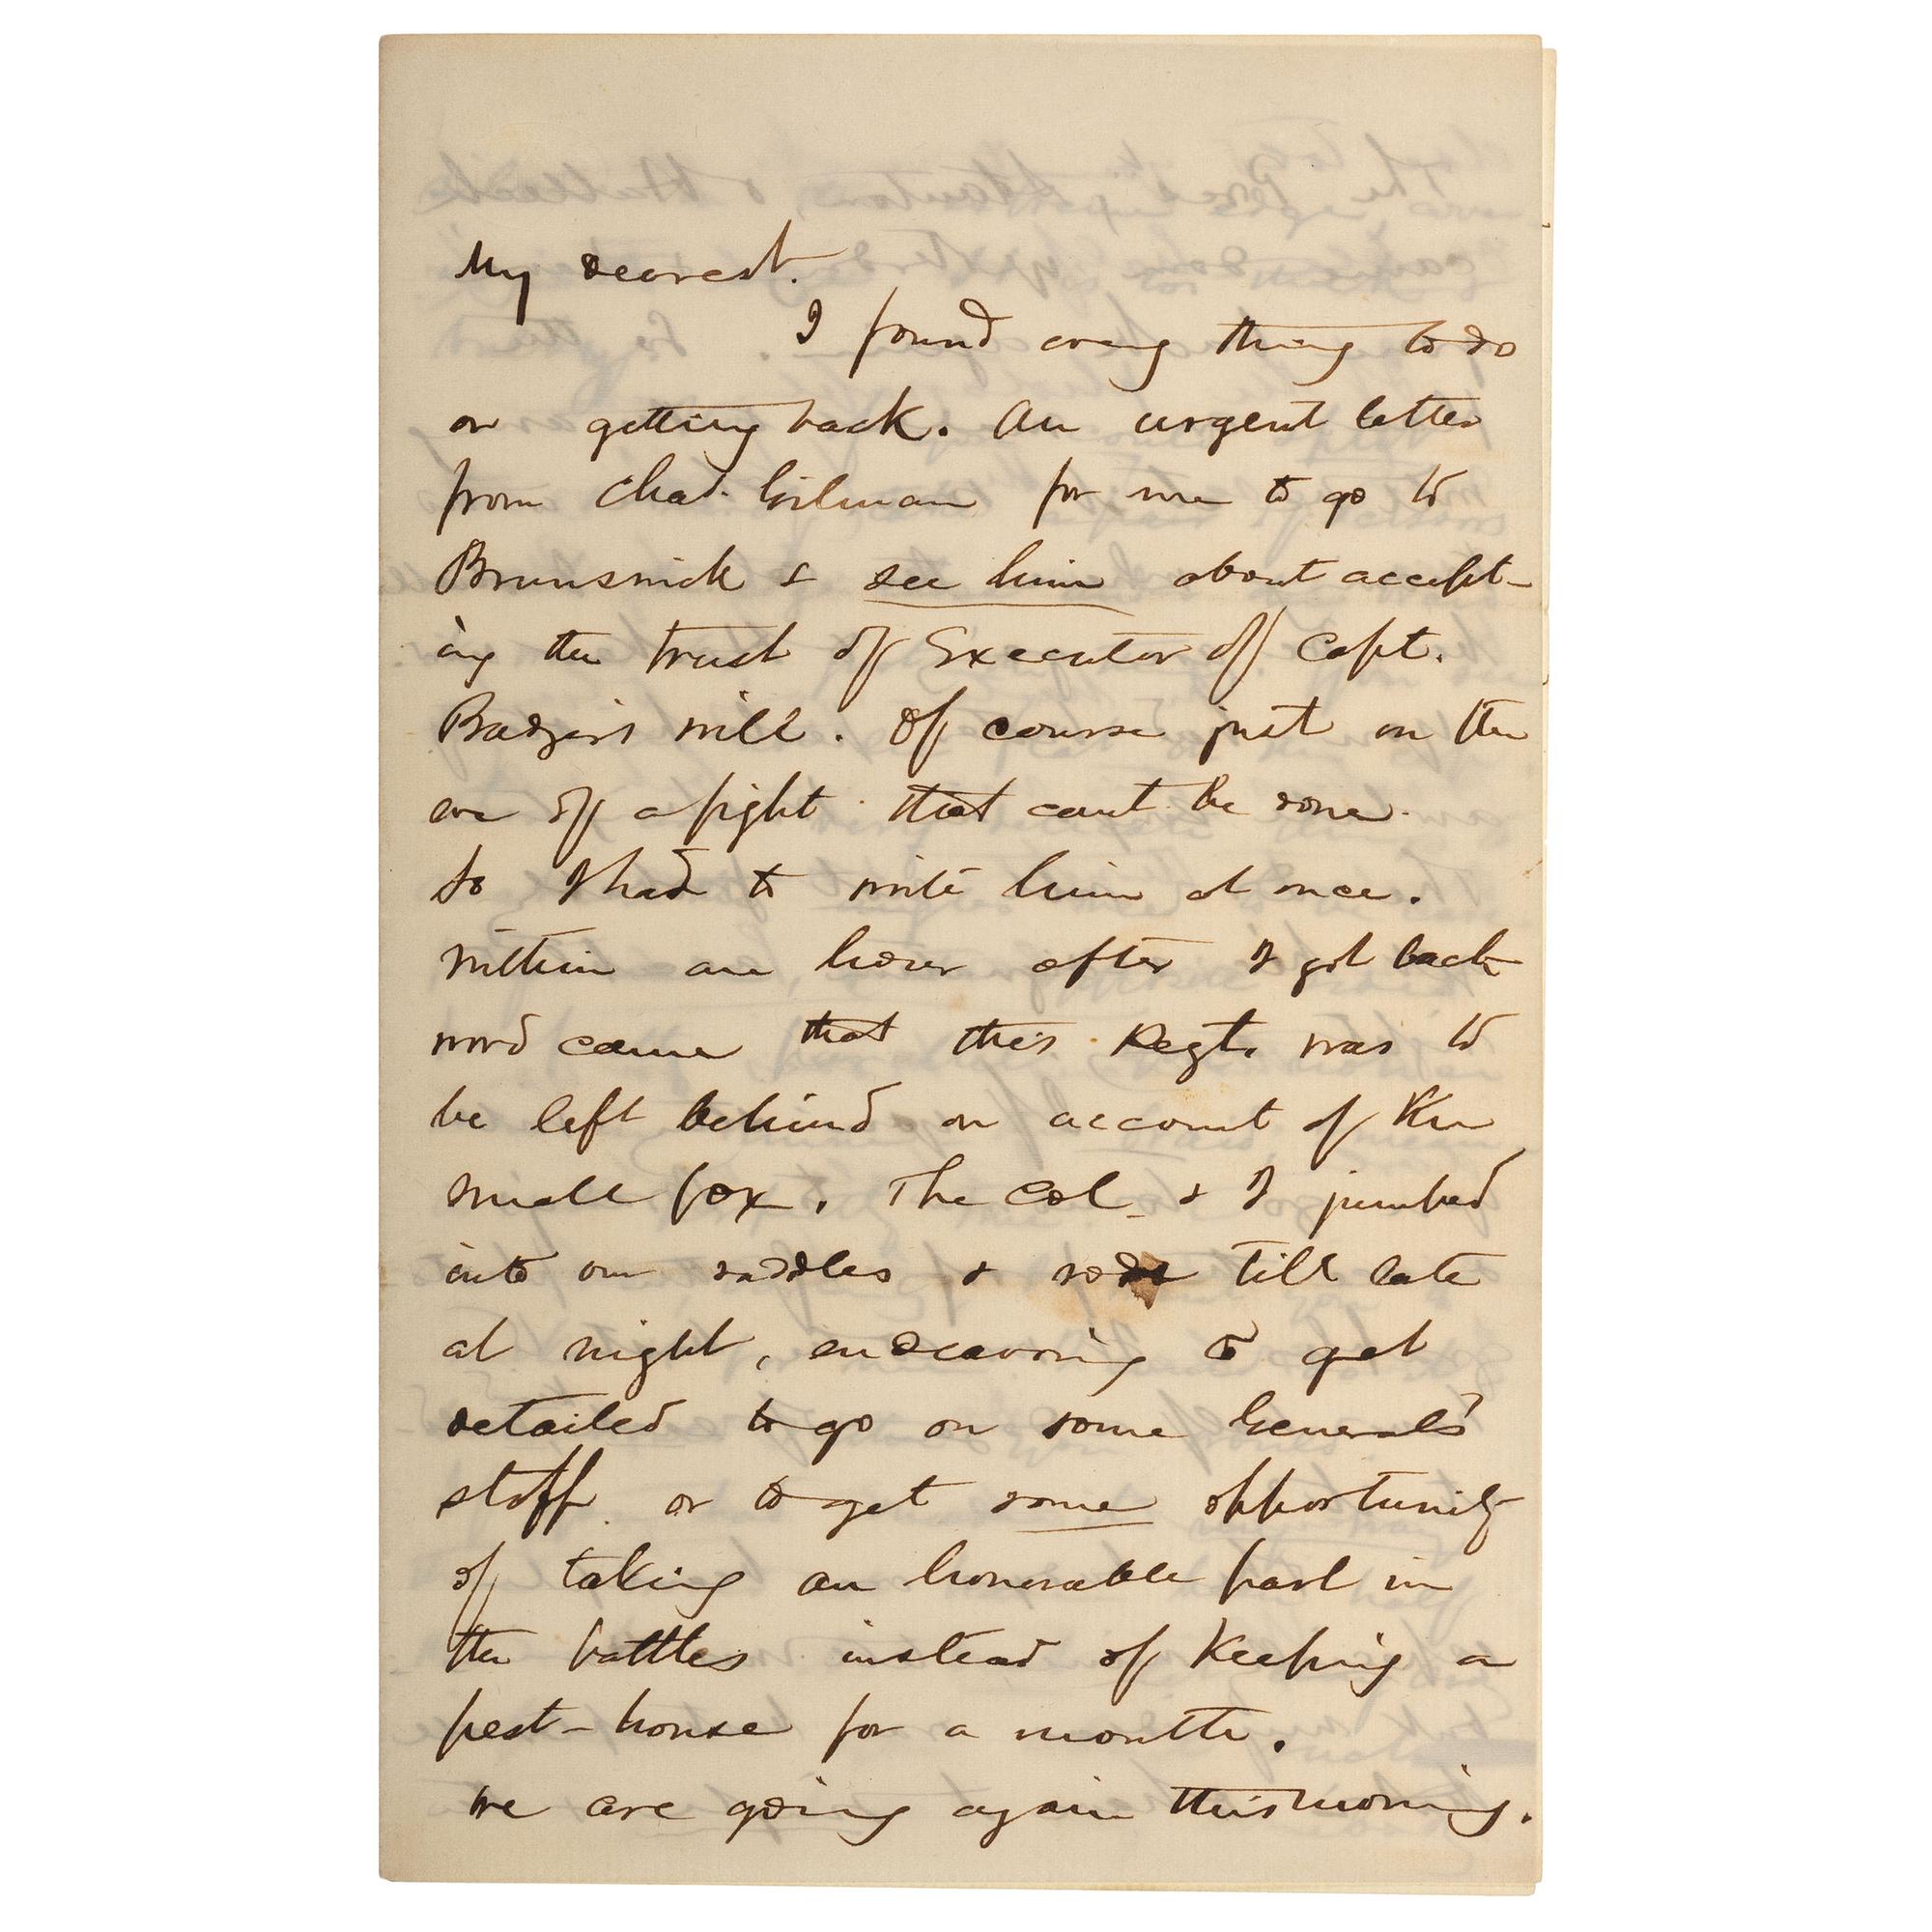 My dearest.
I found every thing to do
on getting back. An urgent letter
from Chas. Gilman for me to go to
Brunswick & see him about accept-
ing the trust of Executor of Capt.
Badger's will. Of course just on the
eve of a fight that cant be done.
So I had to write him at once.
Within an hour after I got back
word came that this Regt. was to
be left behind on account of the
small pox. The Col. & I jumped
into our saddles & rode till late
at night, endeavoring to get
detailed to go on some General's
staff or to get some opportunity
of taking an honorable part in
the battles instead of keeping a
pest-house for a month.
We are going again this morning.